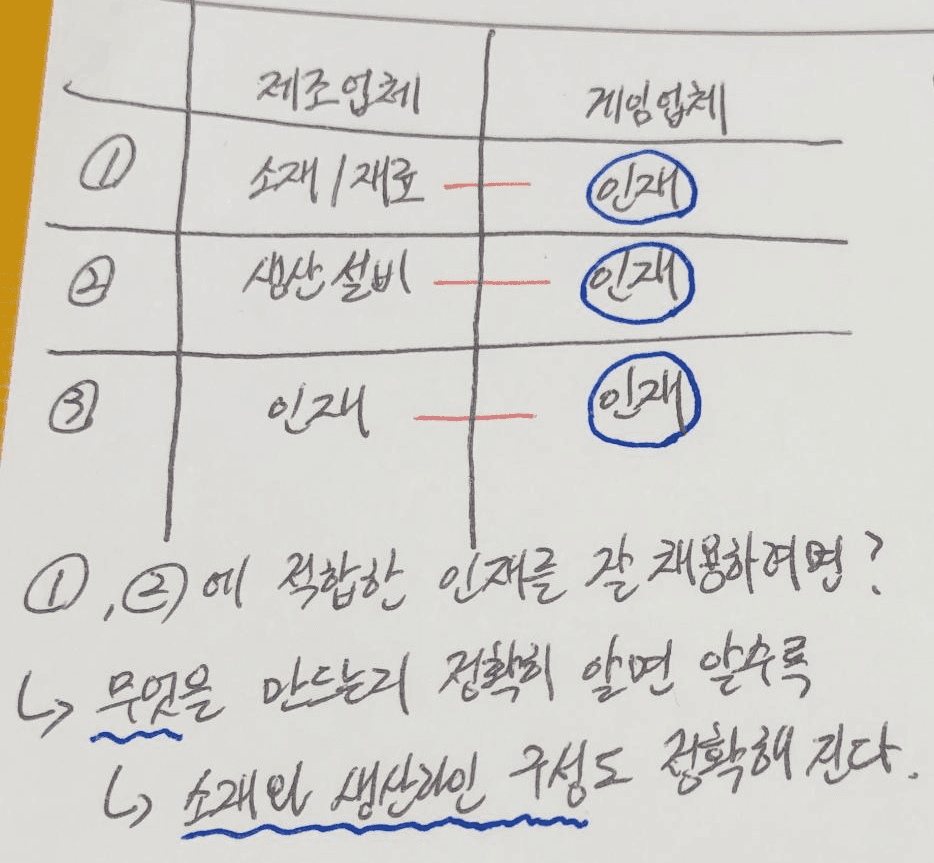 제조업체 게임업체
① 소재/재료 인재
② 생산설비 인재
③ 인재 인재
①,②에 적합한 인재를 잘 채용하려면?
↳ 무엇을 만드는지 정확히 알면 알수록
↳ 소재와 생산라인 구성도 정확해 진다.